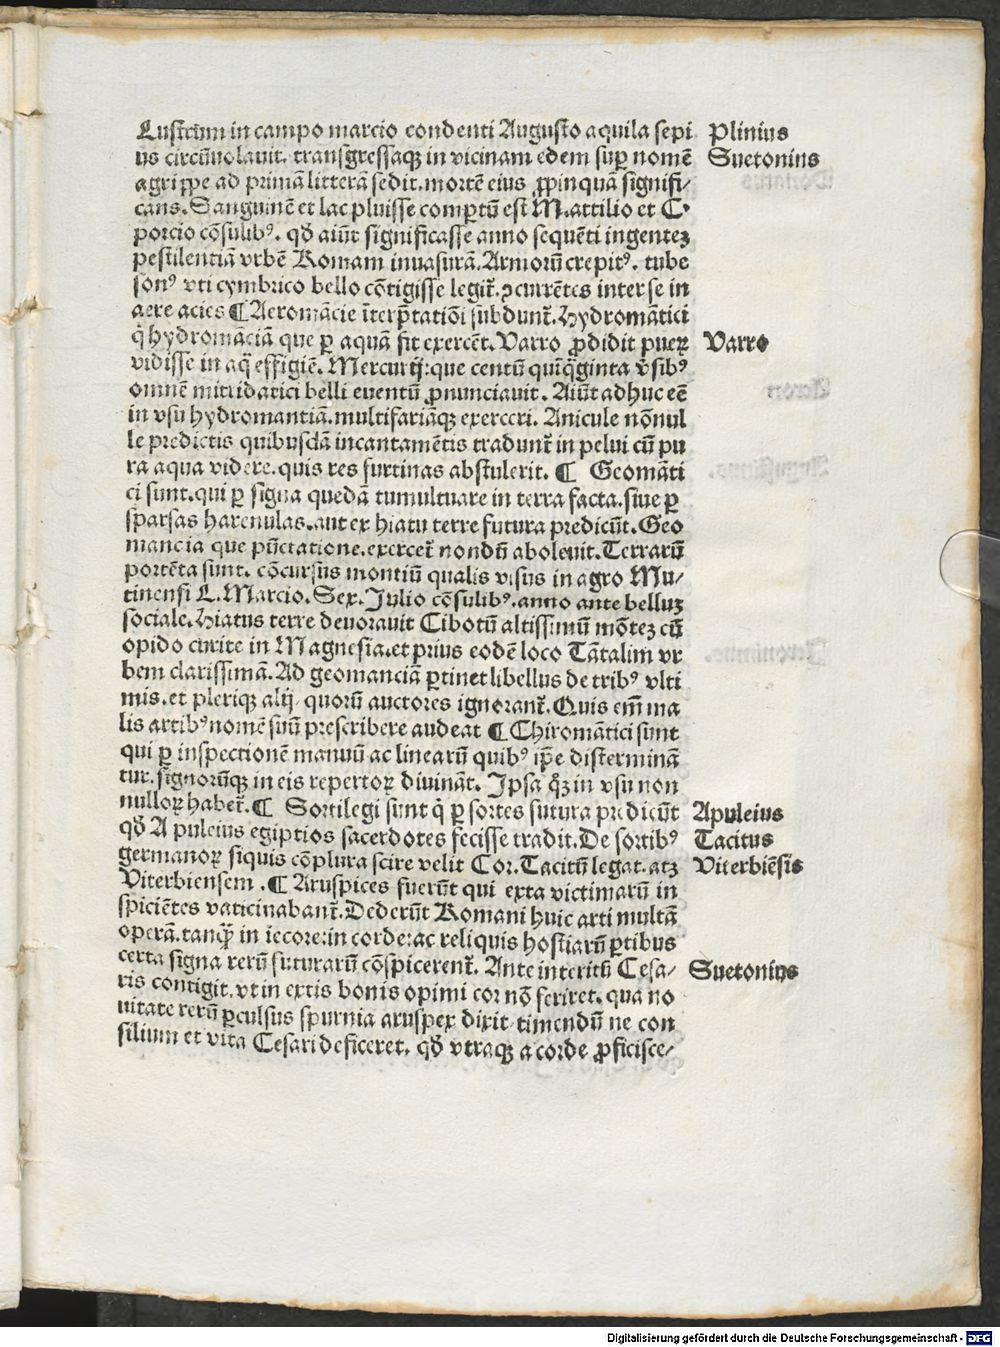 Lustrum in campo marcio condenti Augusto aquila sepi
us circūuolauit. transgressaqꝫ in vicinam edem suꝑ nomē
agrippe ad primā litterā sedit. mortē eius ꝓpinquā signifi/
cans. Sanguinē et lac pluisse comꝑtū est M. attilio et C.
porcio cōsulibꝰ. qđ aiūt significasse anno sequēti ingentez
pestilentiā vrbē Romam inuasurā. Armorū crepitꝰ. tube
sonꝰ vti cymbrico bello cōtigisse legit᷑. ꝯcurrētes inter se in
aere acies ¶ Aeromācie īterp̄tatiōi subdunt᷑. Hydromātici
q̇ hydromāciā que ꝑ aquā fit exercēt. Varro ꝓdidit pueꝝ
vidisse in aq̄ effigiē. Mercurij: que centū quīq̄ginta v̄sibꝰ
omnē mitridatici belli euentū ꝓnunciauit. Aiūt adhuc eē
in vsu hydromantiā. multifariāqꝫ exerceri. Anicule nōnul
le predictis quibusdā incantamētis tradunt᷑ in pelui cū pu
ra aqua videre. quis res furtinas abstulerit. ¶ Geomāti
ci sunt. qui ꝑ signa quedā tumultuare in terra facta. siue ꝑ
sparsas harenulas. aut ex hiatu terre futura predicūt. Geo
mancia que pūctatione. exercet᷑ nondū aboleuit. Terrarū
portēta sunt. cōcursus montiū qualis visus in agro Mu/
tinensi L. Marcio. Sex. Julio cōsulibꝰ. anno ante belluꝫ
sociale. Hiatus terre deuorauit Cibotū altissimū mōteꝫ cū
opido curite in Magnesia. et prius eodē loco Tātalim vr
bem clarissimā. Ad geomanciā ꝑtinet libellus de tribꝰ vlti
mis. et pleriqꝫ alij quorū auctores ignorant᷑. Quis em̄ ma
lis artibꝰ nomē suū prescribere audeat ¶ Chiromātici sunt
qui ꝑ inspectionē manuū ac linearū quibꝰ ip̄e disterminā
tur. signorūqꝫ in eis repertoꝝ diuināt. Ipsa q̊ꝫ in vsu non
nulloꝝ habet᷑. ¶ Sortilegi sunt q̇ ꝑ sortes futura predicūt
qđ Apuleius egiptios sacerdotes fecisse tradit. De sortibꝰ
germanoꝝ siquis cōplura scire velit Cor. Tacitū legat. atꝫ
Viterbiensem. ¶ Aruspices fuerūt qui exta victimarū in
spiciētes vaticinabant᷑. Dederūt Romani huic arti multā
operā. tanqꝫ̄ in iecore: in corde: ac reliquis hostiarū ꝑtibus
certa signa rerū futurarū cōspicerent᷑. Ante interitū Cesa/
ris contigit. vt in extis bonis opimi cor nō feriret. qua no
uitate rerū ꝑculsus spurnia aruspex dixit timendū ne con
silium et vita Cesari deficeret. qđ vtraqꝫ a corde ꝓficisce/
Plinius
Suetonius
Varro
Apuleius
Tacitus
Viterbiēsis
Suetonius
Digitalisierung gefördert durch die Deutsche Forschungsgemeinschaft - DFG